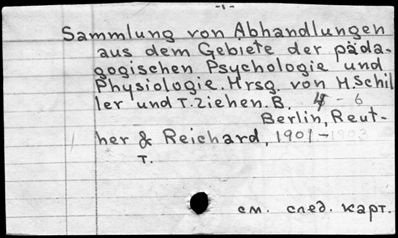 -1-
Sammlung von Abhandlungen
aus dem Gebiete der päda-
gogischen Psychologie und
Physiologie. Hrsg. von H. Schil
ler und T. Ziehen. B. 4 - 6
Berlin, Reut-
her & Reichard, 1901-1903
T.
см. след. карт.